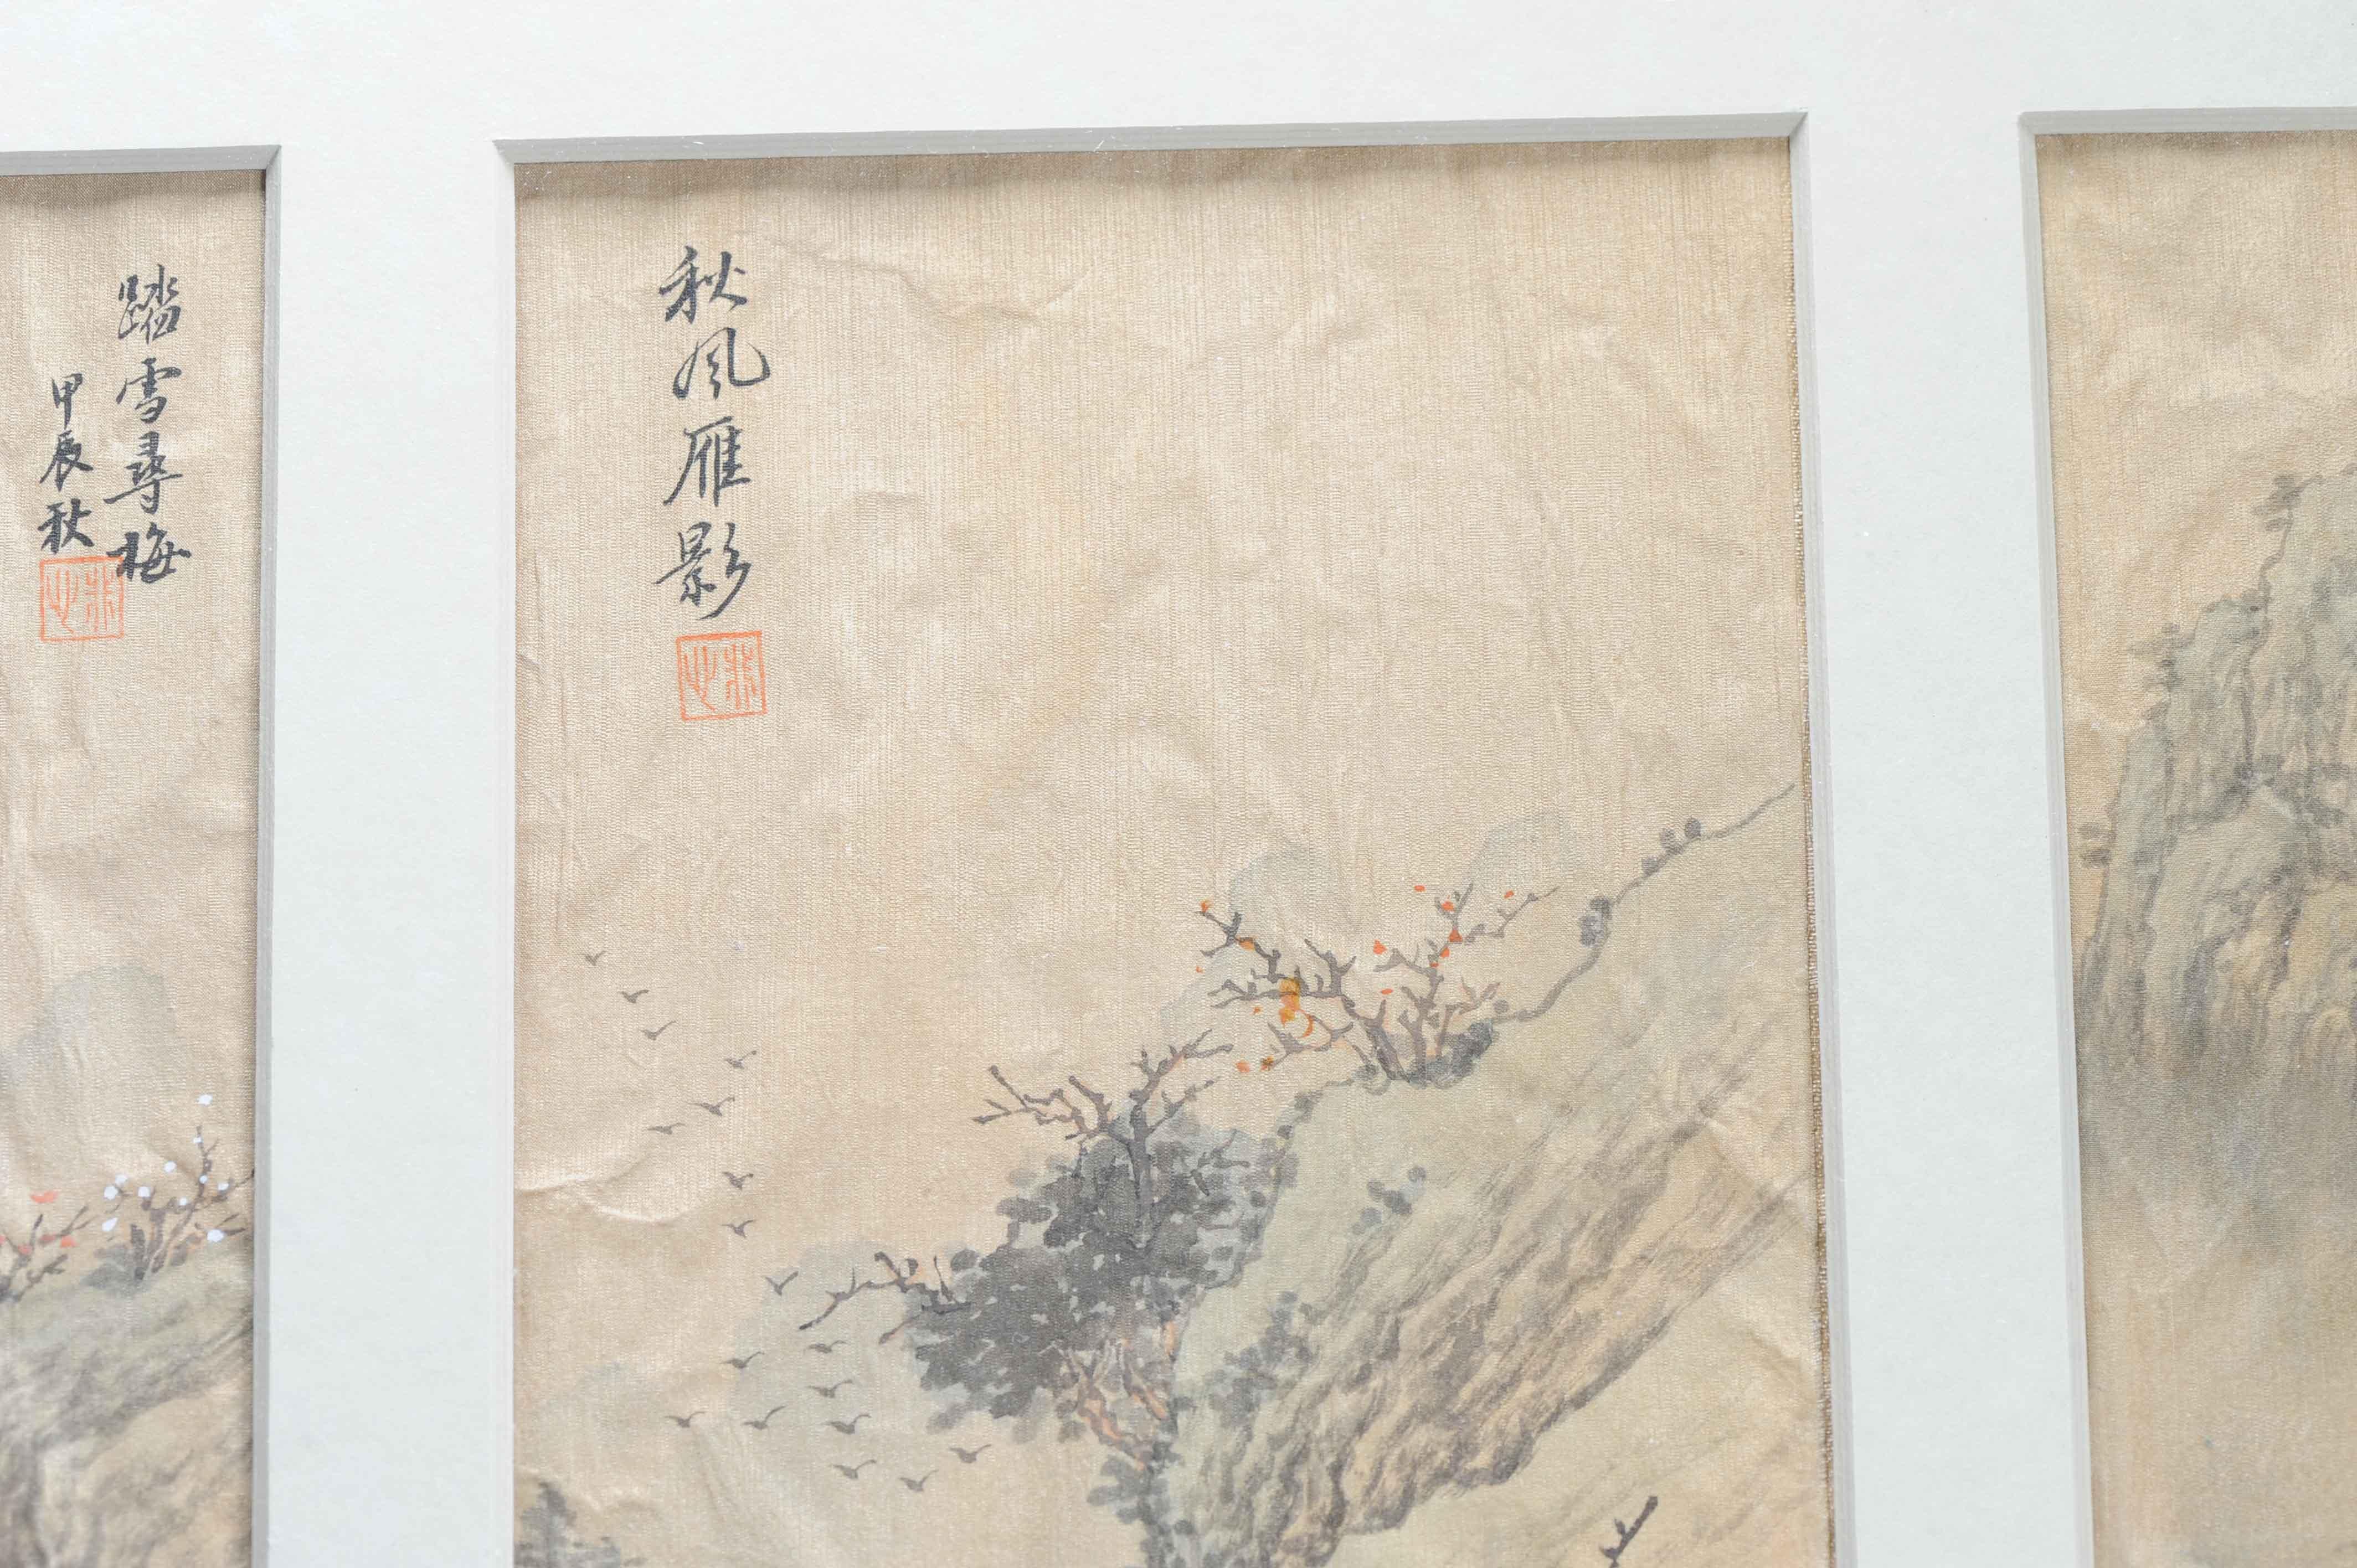 秋風雁影
踏雪尋梅
甲辰秋